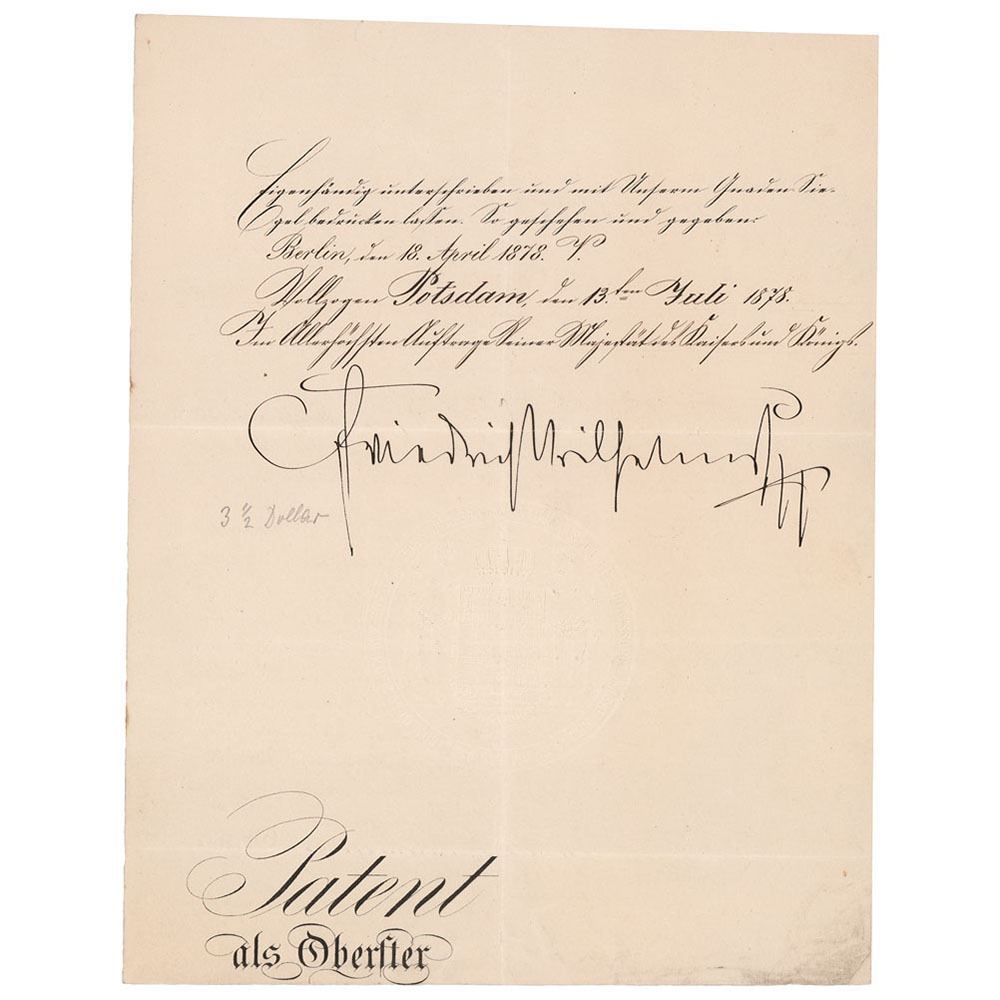 Eigenhändig unterschrieben und mit Unserm Gnaden Sie-
gel bedrucken lassen. So geschehen und gegeben:
Berlin, den 18. April 1878.
Vollzogen Potsdam, den 13ten Juli 1878.
Im Allerhöchsten Auftrage Seiner Majestät des Kaisers und Königs.
Friedrich Wilhelm
3 1/2 Dollar
Patent
als Oberster